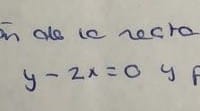 ón de la recta
y - 2x = 0 y p